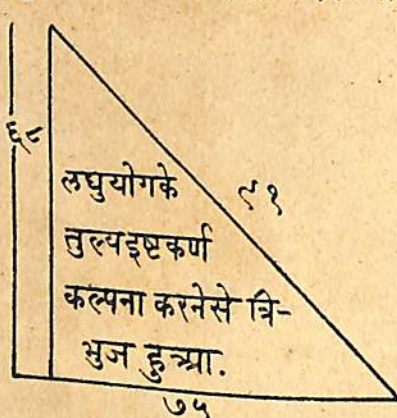 ६८
लघुयोगके
९१
तुल्यइष्टकर्ण
कल्पना करनेसे त्रि-
भुज हुआ.
७५